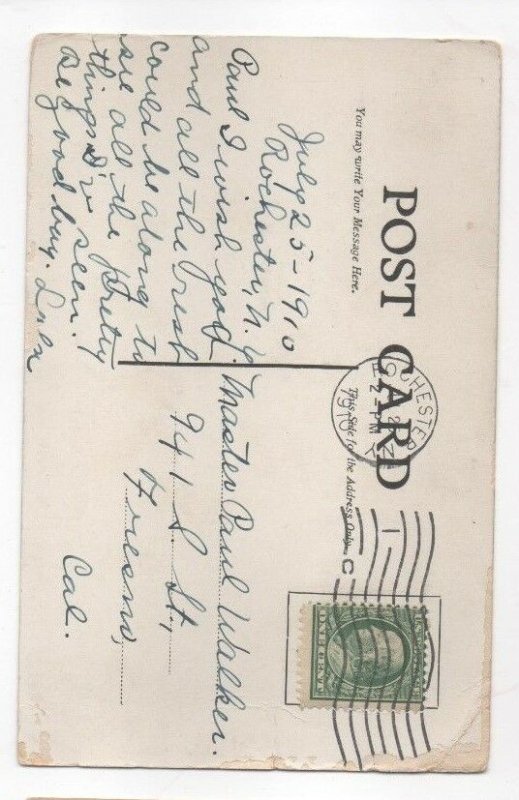 POST CARD
You may write Your Message Here.
This Side for the Address Only.
July 25-1910
Rochester, N.Y.
Paul I wish you
and all the rest
could be along to
see all the pretty
things I've seen.
Be good boy. Lula
Master Paul Walker.
941 S. St.,
Fresno,
Cal.
ROCHESTER
2-PM
1910
N.Y.
C
1
U.S. POSTAGE
ONE CENT